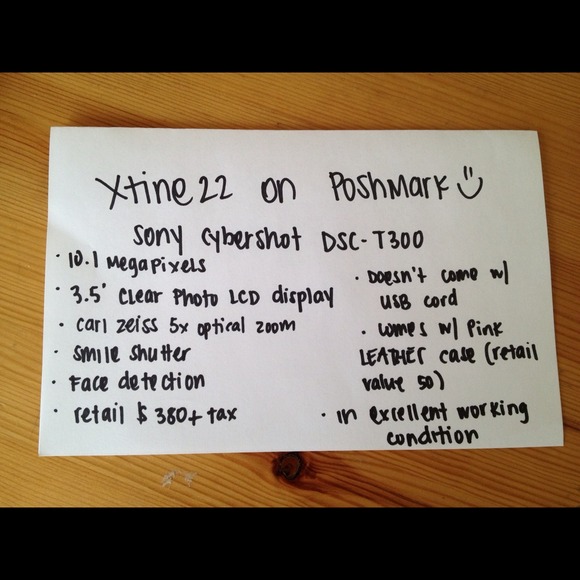 Xtine22 on Poshmark :)
Sony Cybershot DSC-T300
· 10.1 Megapixels
· 3.5" Clear Photo LCD display
· Carl Zeiss 5x optical zoom
· Smile Shutter
· Face detection
· retail $380+ tax
· Doesn't come w/
USB cord
· comes w/ Pink
LEATHER case (retail
value 50)
· in excellent working
condition